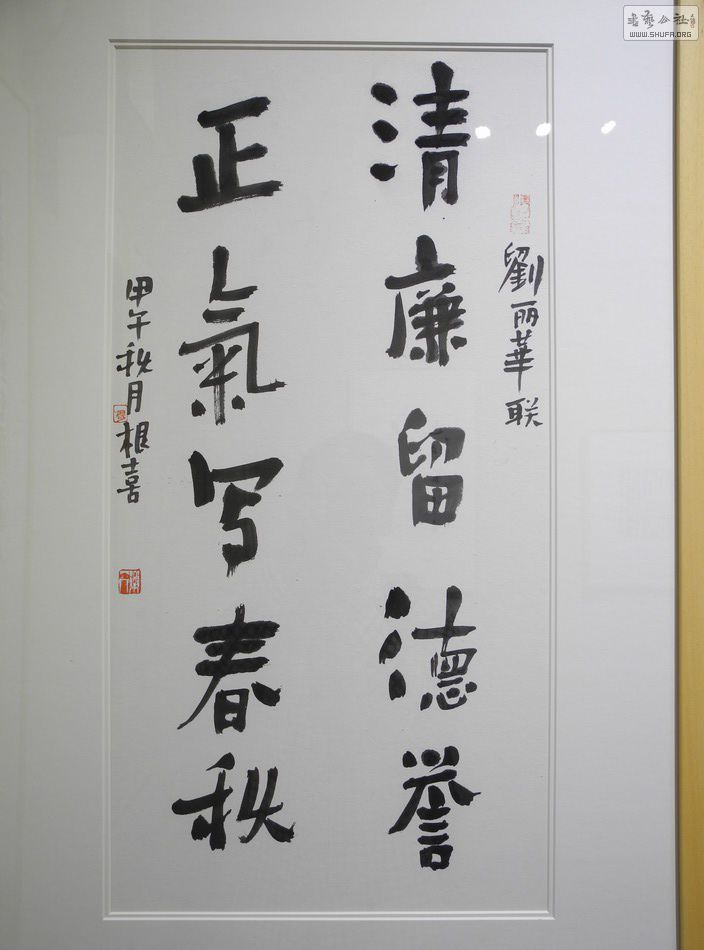 劉丽華联
清廉留德誉
正氣写春秋
甲午秋月根喜
書藝公社
WWW.SHUFA.ORG